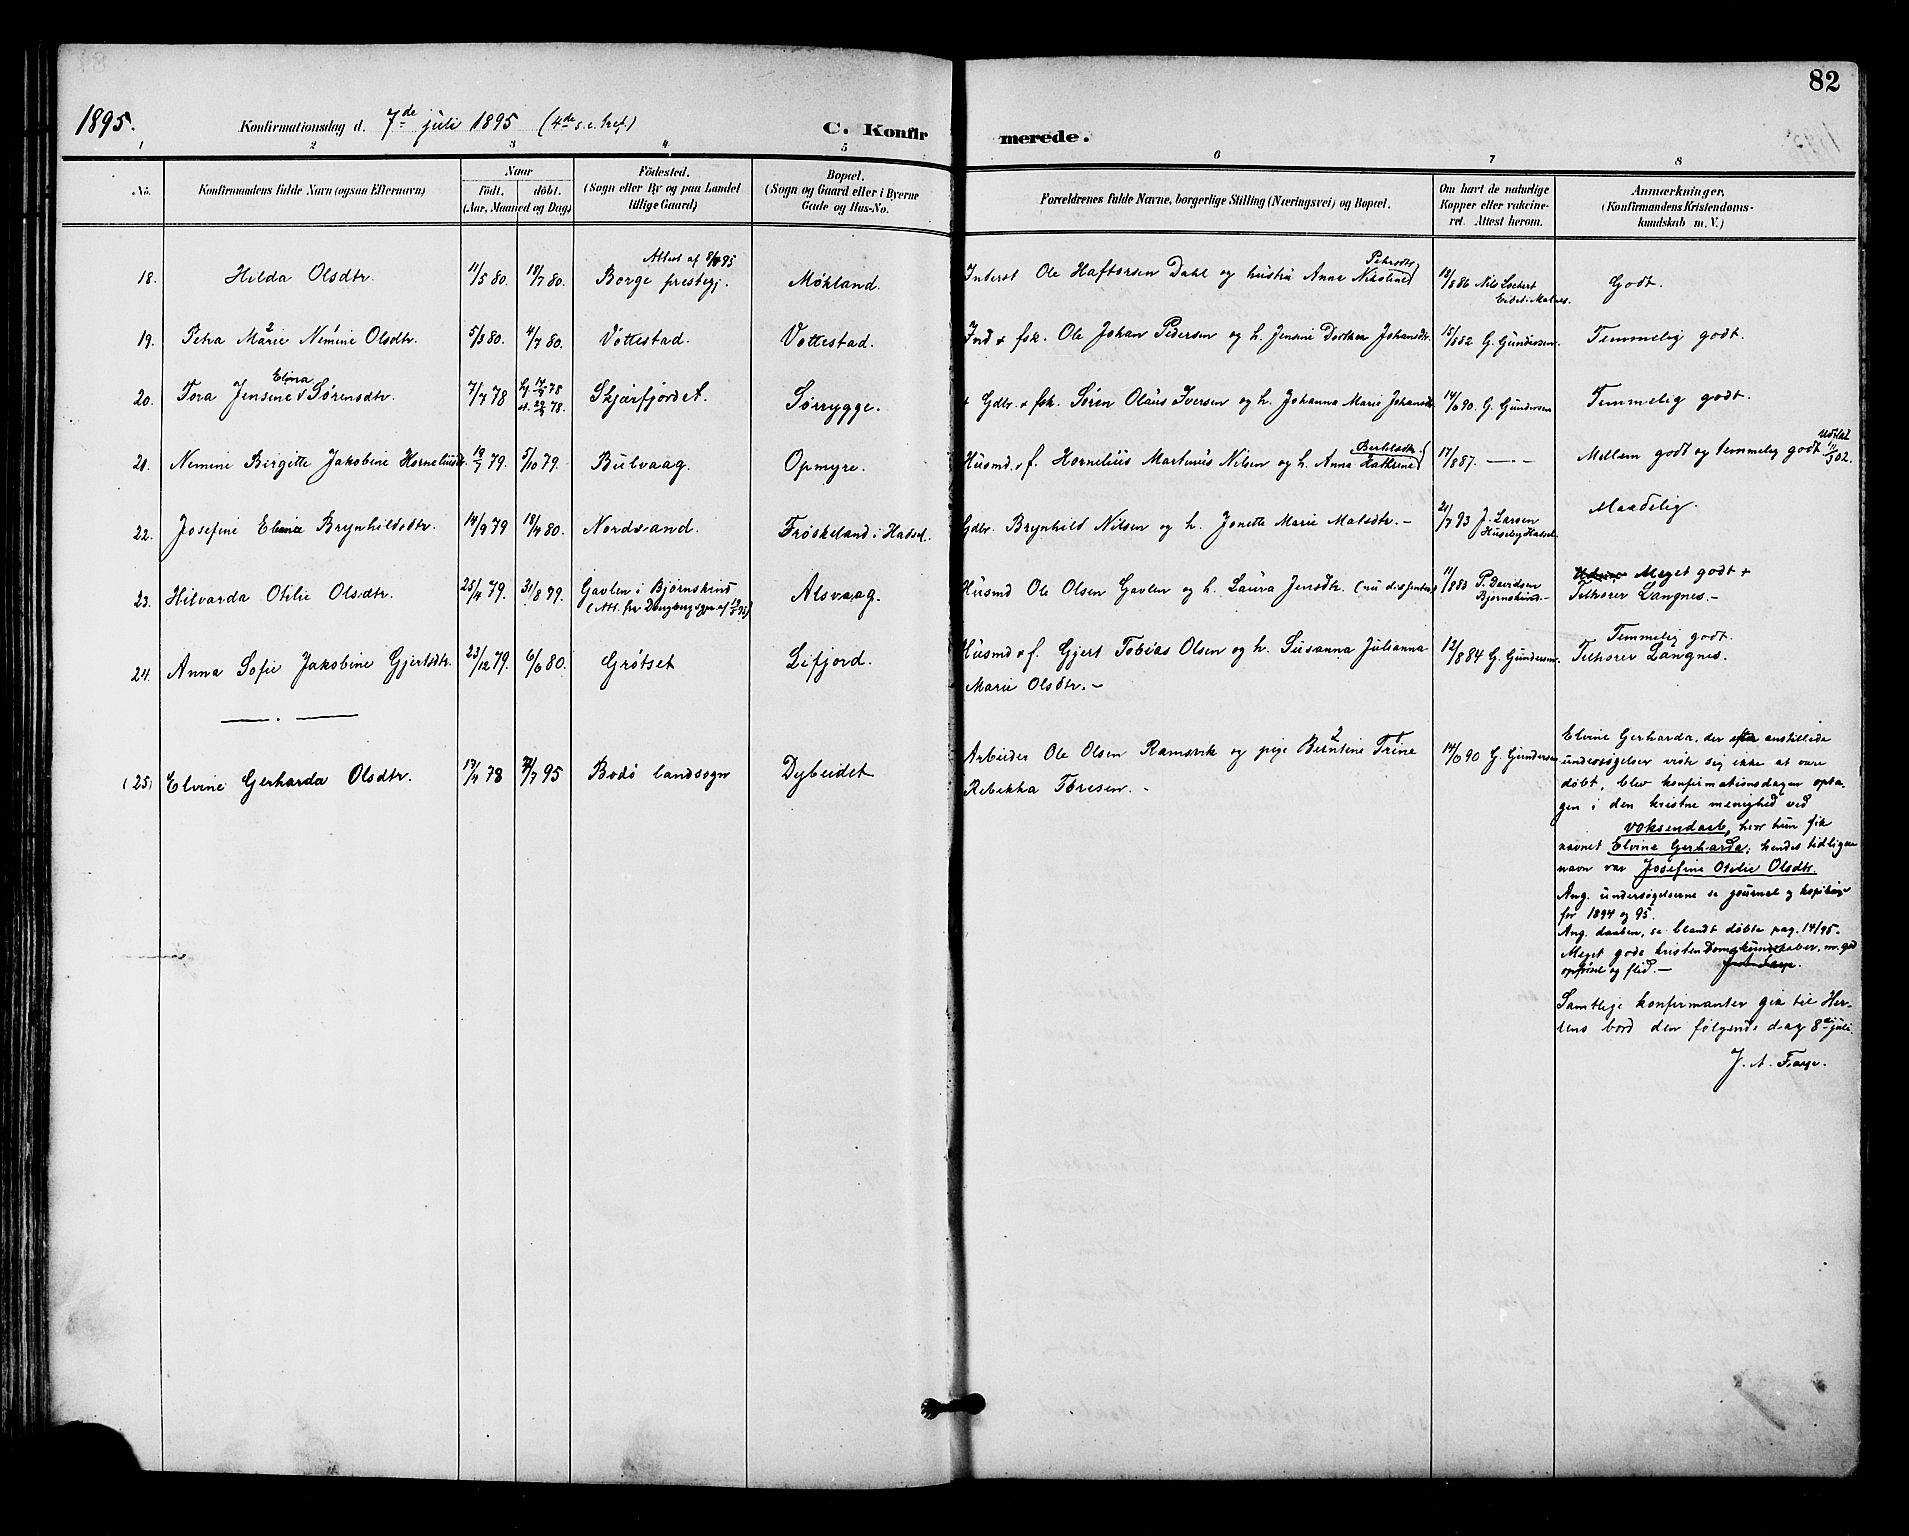 82
1895. Konfirmationsdag d. 7de juli 1895 (4de s. e. tref.) C. Konfirmerede.
1 2 3 4 5 6 7 8
No. Konfirmandens fulde Navn (ogsaa Efternavn) Naar födt. döbt. (Aar, Maaned og Dag) Födested. (Sogn eller By og paa Landet tillige Gaard) Bopæl. (Sogn og Gaard eller i Byerne Gade og Hus-No. Forældrenes fulde Navne, borgerlige Stilling (Næringsvei) og Bopæl. Om havt de naturlige Kopper eller vakcineret. Attest herom. Anmærkninger, (Konfirmandens Kristendomskundskab m. V.)
18. Hilda Olsdtr. 11/5 80. 18/7 80. Attest af 95 Borge prestegj. Møkland. Inderst Ole Haftorsen Dahl og hustru Anna Nikoline Petersdtr 886 Nils Lochert Eidet i Malnes. Godt.
19. Petra Marie Nemine Olsdtr. 5/3 80. 4/7 80. Vottestad. Vottestad. Ind & fsk. Ole Johan Pedersen og h. Jensine Dorthea Johansdtr. 15/882 G. Gundersen. Temmelig godt.
20. Tora Jensine Elina Sørensdtr. 7/7 78 Skjærfjordet. Sørrygge. + Gdbr. & fsk. Søren Olaus Iversen og h. Johanna Marie Johansdtr 14/ 90 G. Gundersen Temmelig godt.
21. Nemine Birgitte Jakobine Horneliusdtr. 79. 5/10 79. Bulvaag. Opmyre. Husmd & f. Hornelius Martinus Nilsen og h. Anna Kathrine 17/887. —·— Mellem godt og temmelig godt Udstedt 02.
22. Josefine Elenea Brynhildsdtr. 14/9 79 18/4 80. Nordsand. Frøskeland i Hadsel. Gdbr. Brynhild Nilsen og h. Jonette Marie Matsdtr. — 21/7 93 J. Larsen Huseby Hadsel. Maadelig.
23. Hilvarda Otilie Olsdtr. 25/4 79. 31/8 79. Gavlen i Bjørnskind (Att. fra Dverbergs sgpr af 95) Alsvaag. Husmd Ole Olsen Gavlen og h. Laura Jensdtr. (nu dissenter) 11/883 P. Davidsen Bjørnskind — Meget godt + Tilhører Langnes. —
24. Anna Sofie Jakobine Gjertsdtr. 23/12 79. 6/6 80. Grøtset Lifjord. Husmd & f. Gjert Tobias Olsen og h. Susanna Julianna Marie Olsdtr. — 12/884 G. Gundersen. Temmelig godt. Tilhører Langnes.
— · —
(25) Elvine Gerharda Olsdtr. 17/4 78 7/7 95 Bodø landsogn Dybeidet Arbeider Ole Olsen Ramsvik og pige Berntine Trine Rebekka Toresen. — 14/ 90 G. Gundersen
Elvine Gerharda, der efter anstillede
undersøgelser viste sig ikke at være
døbt, blev konfirmationsdagen opta-
gen i den kristne menighed ved
voksendaab, hvor hun fik
navnet Elvine Gerharda; hendes tidligere
navn var Josefine Otilie Olsdtr.
Ang. undersøgelserne se journal og kopibog
for 1894 og 95.
Ang. daaben, se blandt døbte pag. 14/95.
Meget gode kristendomskundskaber, m. god
opførsel og flid. —
Samtlige konfirmanter gik til Her-
rens bord den følgende dag 8de juli.
J. A. Farje.